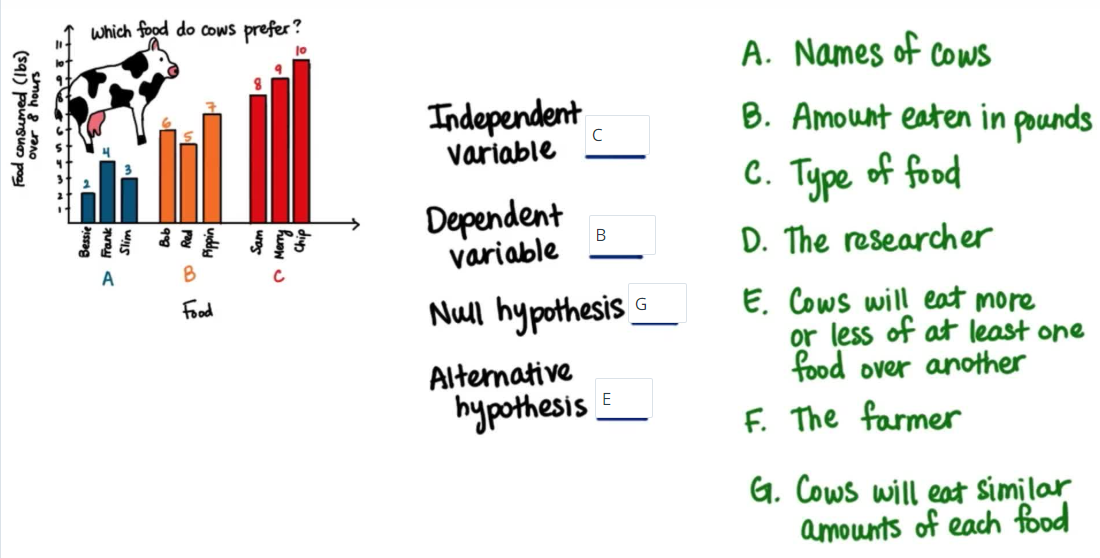 Which food do cows prefer?
Food consumed (lbs)
over 8 hours
11
10
9
8
6
5
4
3
2
1
2
4
3
6
5
7
8
9
10
Bessie
Frank
Slim
Bob
Red
Pippin
Sam
Merry
Chip
A
B
C
Food
Independent
variable
C
Dependent
variable
B
Null hypothesis
G
Alternative
hypothesis
E
A. Names of cows
B. Amount eaten in pounds
C. Type of food
D. The researcher
E. Cows will eat more
or less of at least one
food over another
F. The farmer
G. Cows will eat similar
amounts of each food